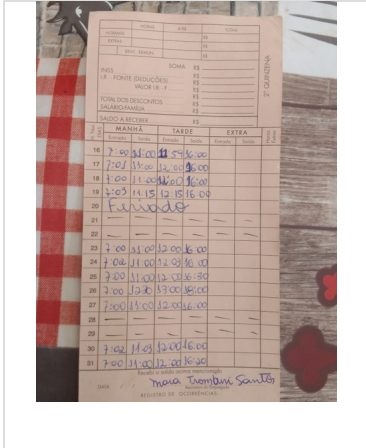 HORAS A R$ TOTAL
NORMAIS R$
EXTRAS R$
DESC. REMUN. R$
SOMA R$
INSS R$
I.R. FONTE (DEDUÇÕES) R$
VALOR I.R.F. R$
R$
TOTAL DOS DESCONTOS R$
SALÁRIO-FAMÍLIA R$
SALDO A RECEBER R$
2ª QUINZENA
MANHÃ TARDE EXTRA
Entrada Saída Entrada Saída Entrada Saída
16 7:00 11:00 11:59 16:00
17 7:01 11:00 12:00 16:00
18 7:00 11:00 12:00 16:00
19 7:03 11:15 12:15 16:00
20 Feriado
21 — — — — — —
22 — — — — — —
23 7:00 11:00 12:00 16:00
24 7:02 11:00 12:03 16:00
25 7:00 11:00 12:00 16:30
26 7:00 12:30 13:00 16:00
27 7:00 11:00 12:00 16:00
28 — — — — — —
29 — — — — — —
30 7:02 11:03 12:00 16:00
31 7:00 11:00 12:00 16:20
Recebi o saldo acima mencionado
DATA
Santos
REGISTRO DE OCORRÊNCIAS